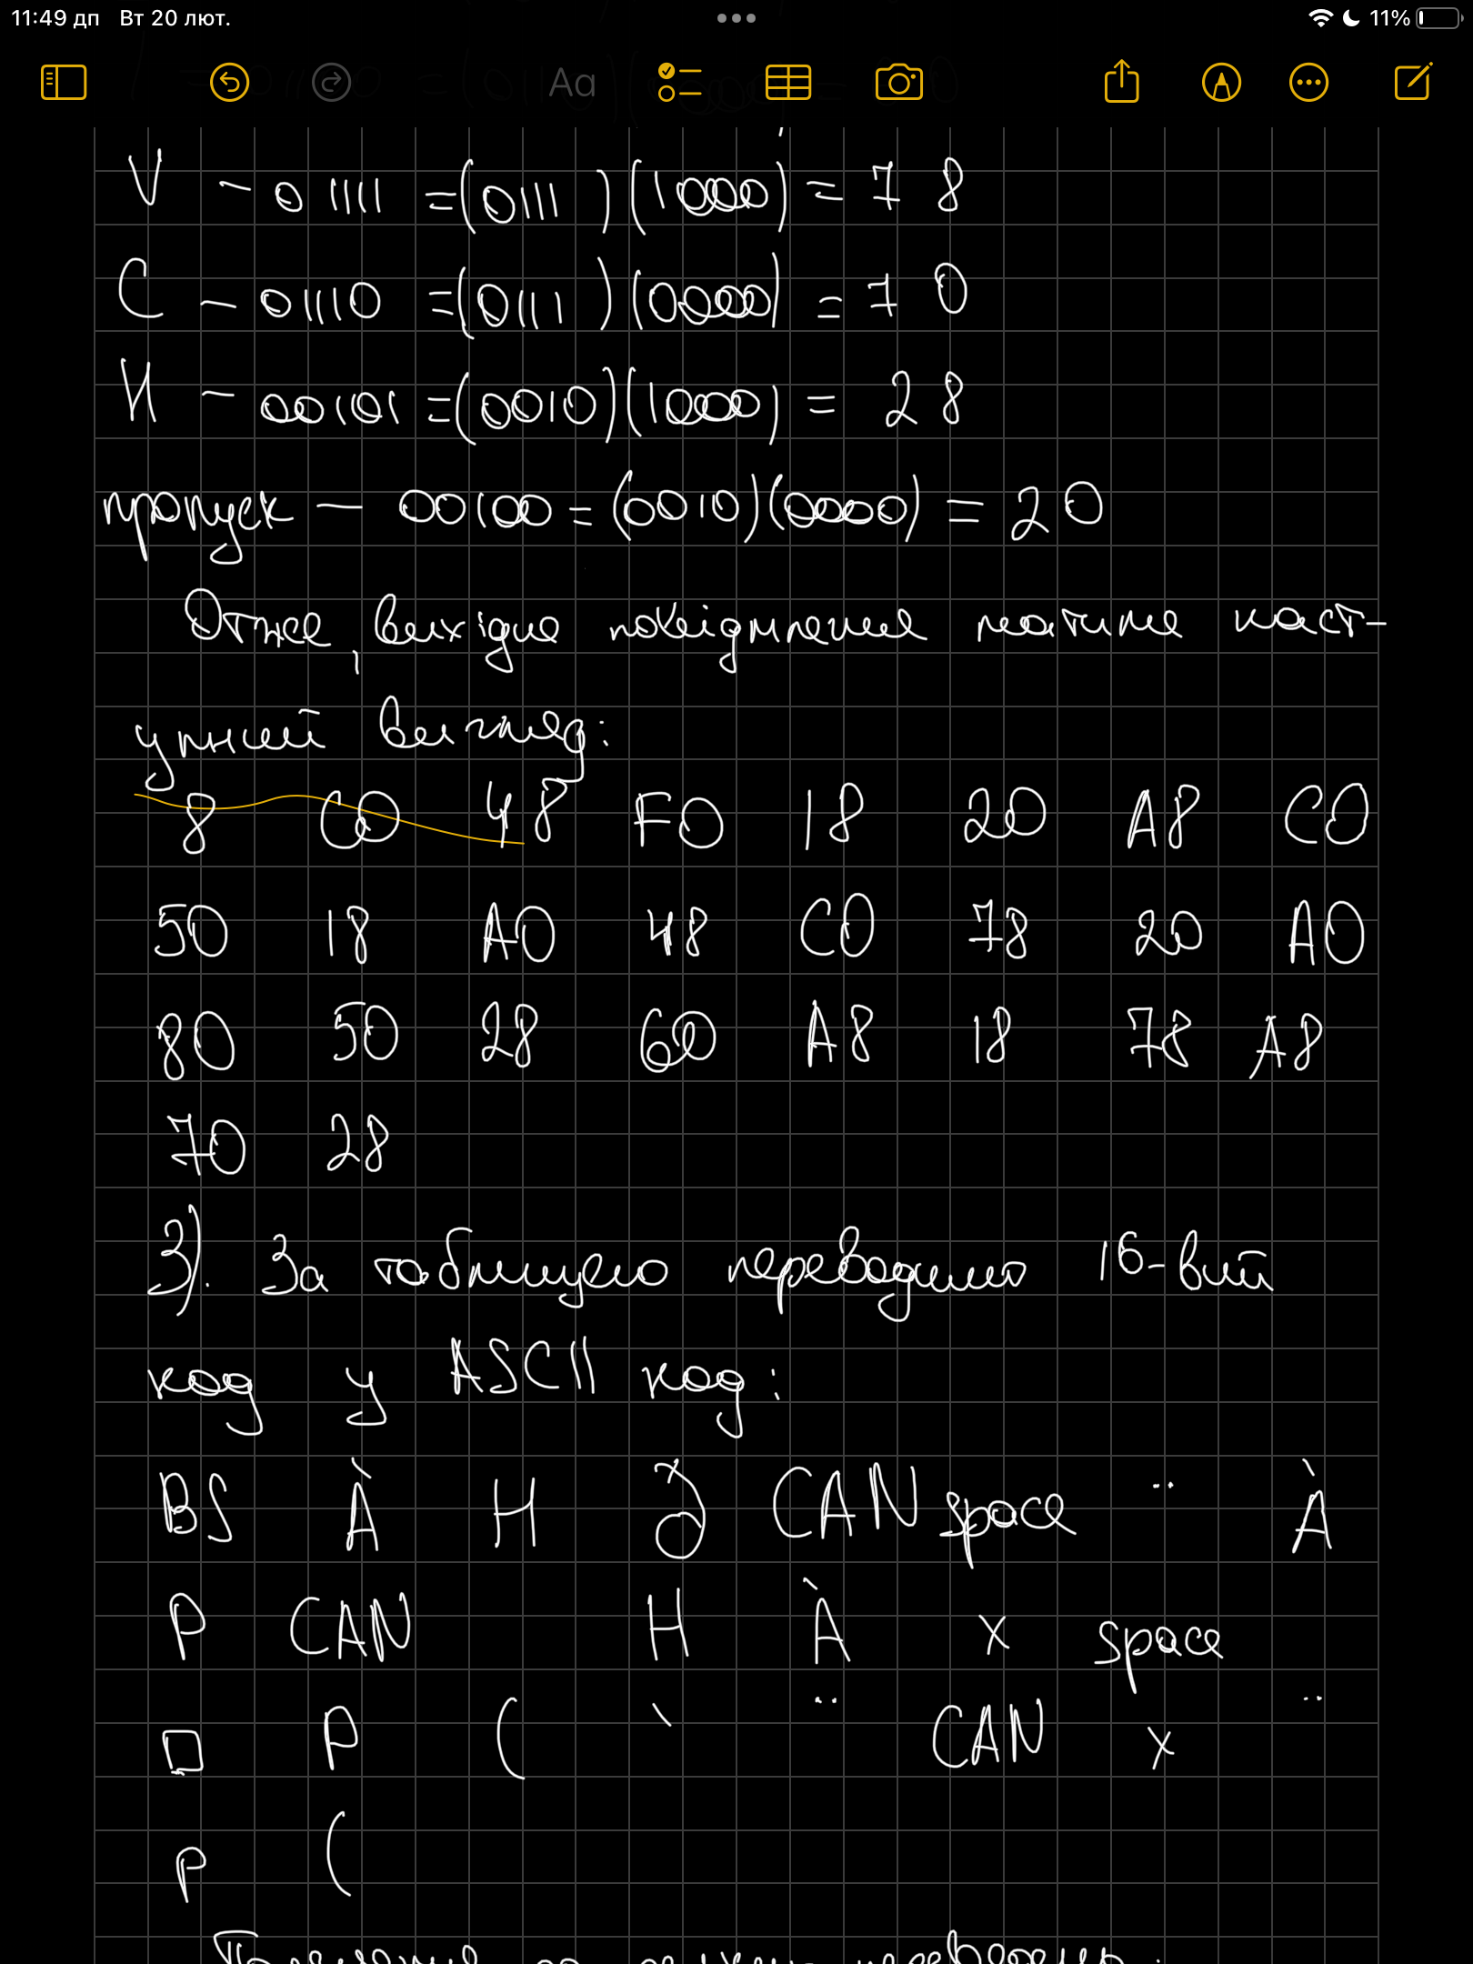 11:49 дп Вт 20 лют. 11%
Aa
V - 01111 = (0111)(1000) = 78
C - 01110 = (0111)(0000) = 70
И - 00101 = (0010)(1000) = 28
пропуск - 00100 = (0010)(0000) = 20
Отже, вихідне повідмлення матиме наст-
упний вигляд:
8 C0 48 F0 18 20 A8 C0
50 18 A0 48 C0 78 20 A0
80 50 28 60 A8 18 78 A8
70 28
3). За таблицею переводимо 16-вий
код у ASCII код:
BS À H ð CAN space ¨ À
P CAN H À x space
□ P ( ` ¨ CAN x ¨
p (